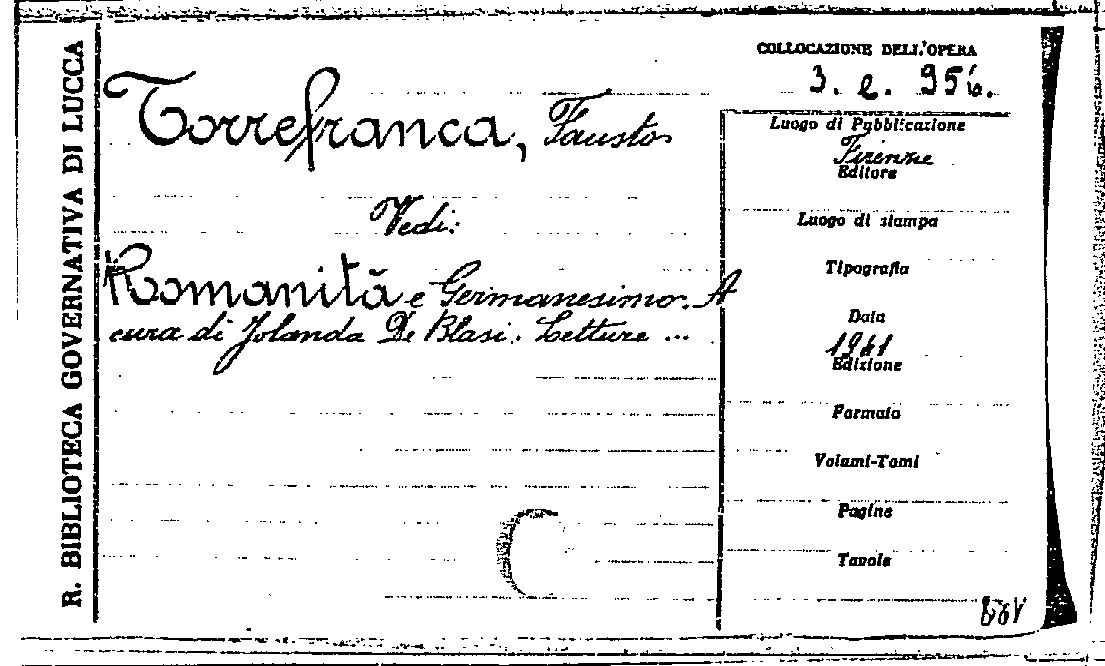 R. BIBLIOTECA GOVERNATIVA DI LUCCA
COLLOCAZIONE DELL'OPERA
3. e. 956.
Torrefranca, Fausto
Vedi:
Romanità e Germanesimo. A
cura di Jolanda De Blasi. Letture ...
Luogo di Pubblicazione
Firenze
Editore
Luogo di stampa
Tipografia
Data
1941
Edizione
Formato
Volumi-Tomi
Pagine
Tavole